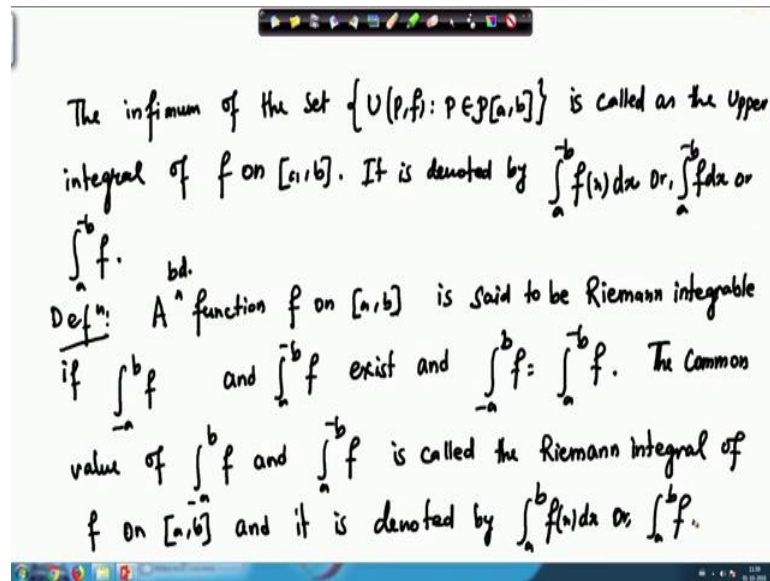 The infimum of the set {U(P,f): P∈𝒫[a,b]} is called as the Upper
integral of f on [a,b]. It is denoted by ∫_a^{-b} f(x)dx or, ∫_a^{-b} fdx or
∫_a^{-b} f.
bd.
Defⁿ: A ^ function f on [a,b] is said to be Riemann integrable
if ∫_{-a}^b f and ∫_a^{-b} f exist and ∫_{-a}^b f = ∫_a^{-b} f. The Common
value of ∫_{-a}^b f and ∫_a^{-b} f is called the Riemann integral of
f on [a,b] and it is denoted by ∫_a^b f(x)dx or, ∫_a^b f.